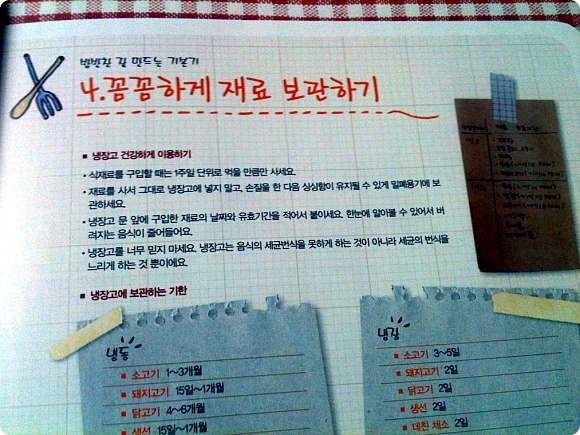 밥반찬 잘 만드는 기본기
4.꼼꼼하게 재료 보관하기
■ 냉장고 건강하게 이용하기
• 식재료를 구입할 때는 1주일 단위로 먹을 만큼만 사세요.
• 재료를 사서 그대로 냉장고에 넣지 말고, 손질을 한 다음 싱싱함이 유지될 수 있게 밀폐용기에 보
관하세요.
• 냉장고 문 앞에 구입한 재료의 날짜와 유효기간을 적어서 붙이세요. 한눈에 알아볼 수 있어서 버
려지는 음식이 줄어들어요.
• 냉장고를 너무 믿지 마세요. 냉장고는 음식의 세균번식을 못하게 하는 것이 아니라 세균의 번식을
느리게 하는 것 뿐이에요.
■ 냉장고에 보관하는 기한
냉동
■ 소고기 1~3개월
■ 돼지고기 15일~1개월
■ 닭고기 4~6개월
■ 생선 15일~1개월
냉장
■ 소고기 3~5일
■ 돼지고기 2일
■ 닭고기 2일
■ 생선 2일
■ 데친 채소 2일